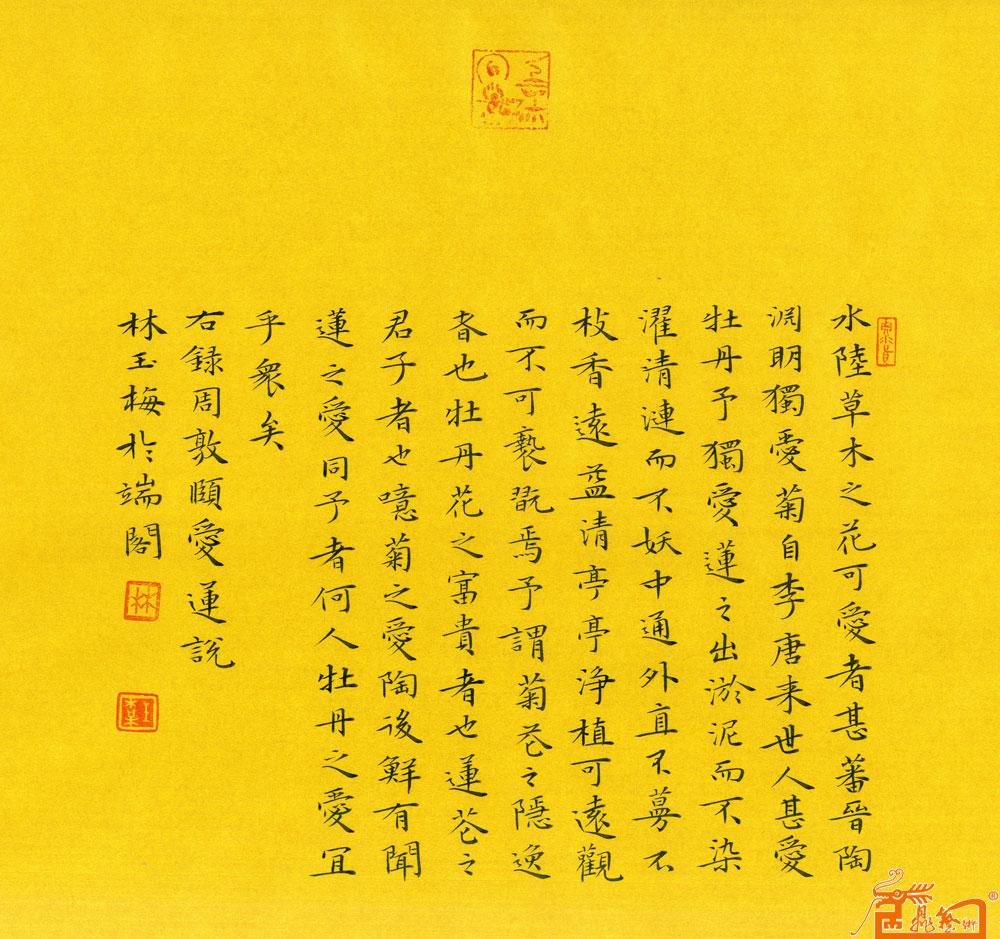 水陸草木之花可愛者甚蕃晉陶
淵明獨愛菊自李唐来世人甚愛
牡丹予獨愛蓮之出淤泥而不染
濯清漣而不妖中通外直不蔓不
枝香遠益清亭亭净植可遠觀
而不可褻翫焉予謂菊花之隱逸
者也牡丹花之富貴者也蓮花之
君子者也噫菊之愛陶後鮮有聞
蓮之愛同予者何人牡丹之愛宜
乎衆矣
右錄周敦頤愛蓮説
林玉梅於端閣
林